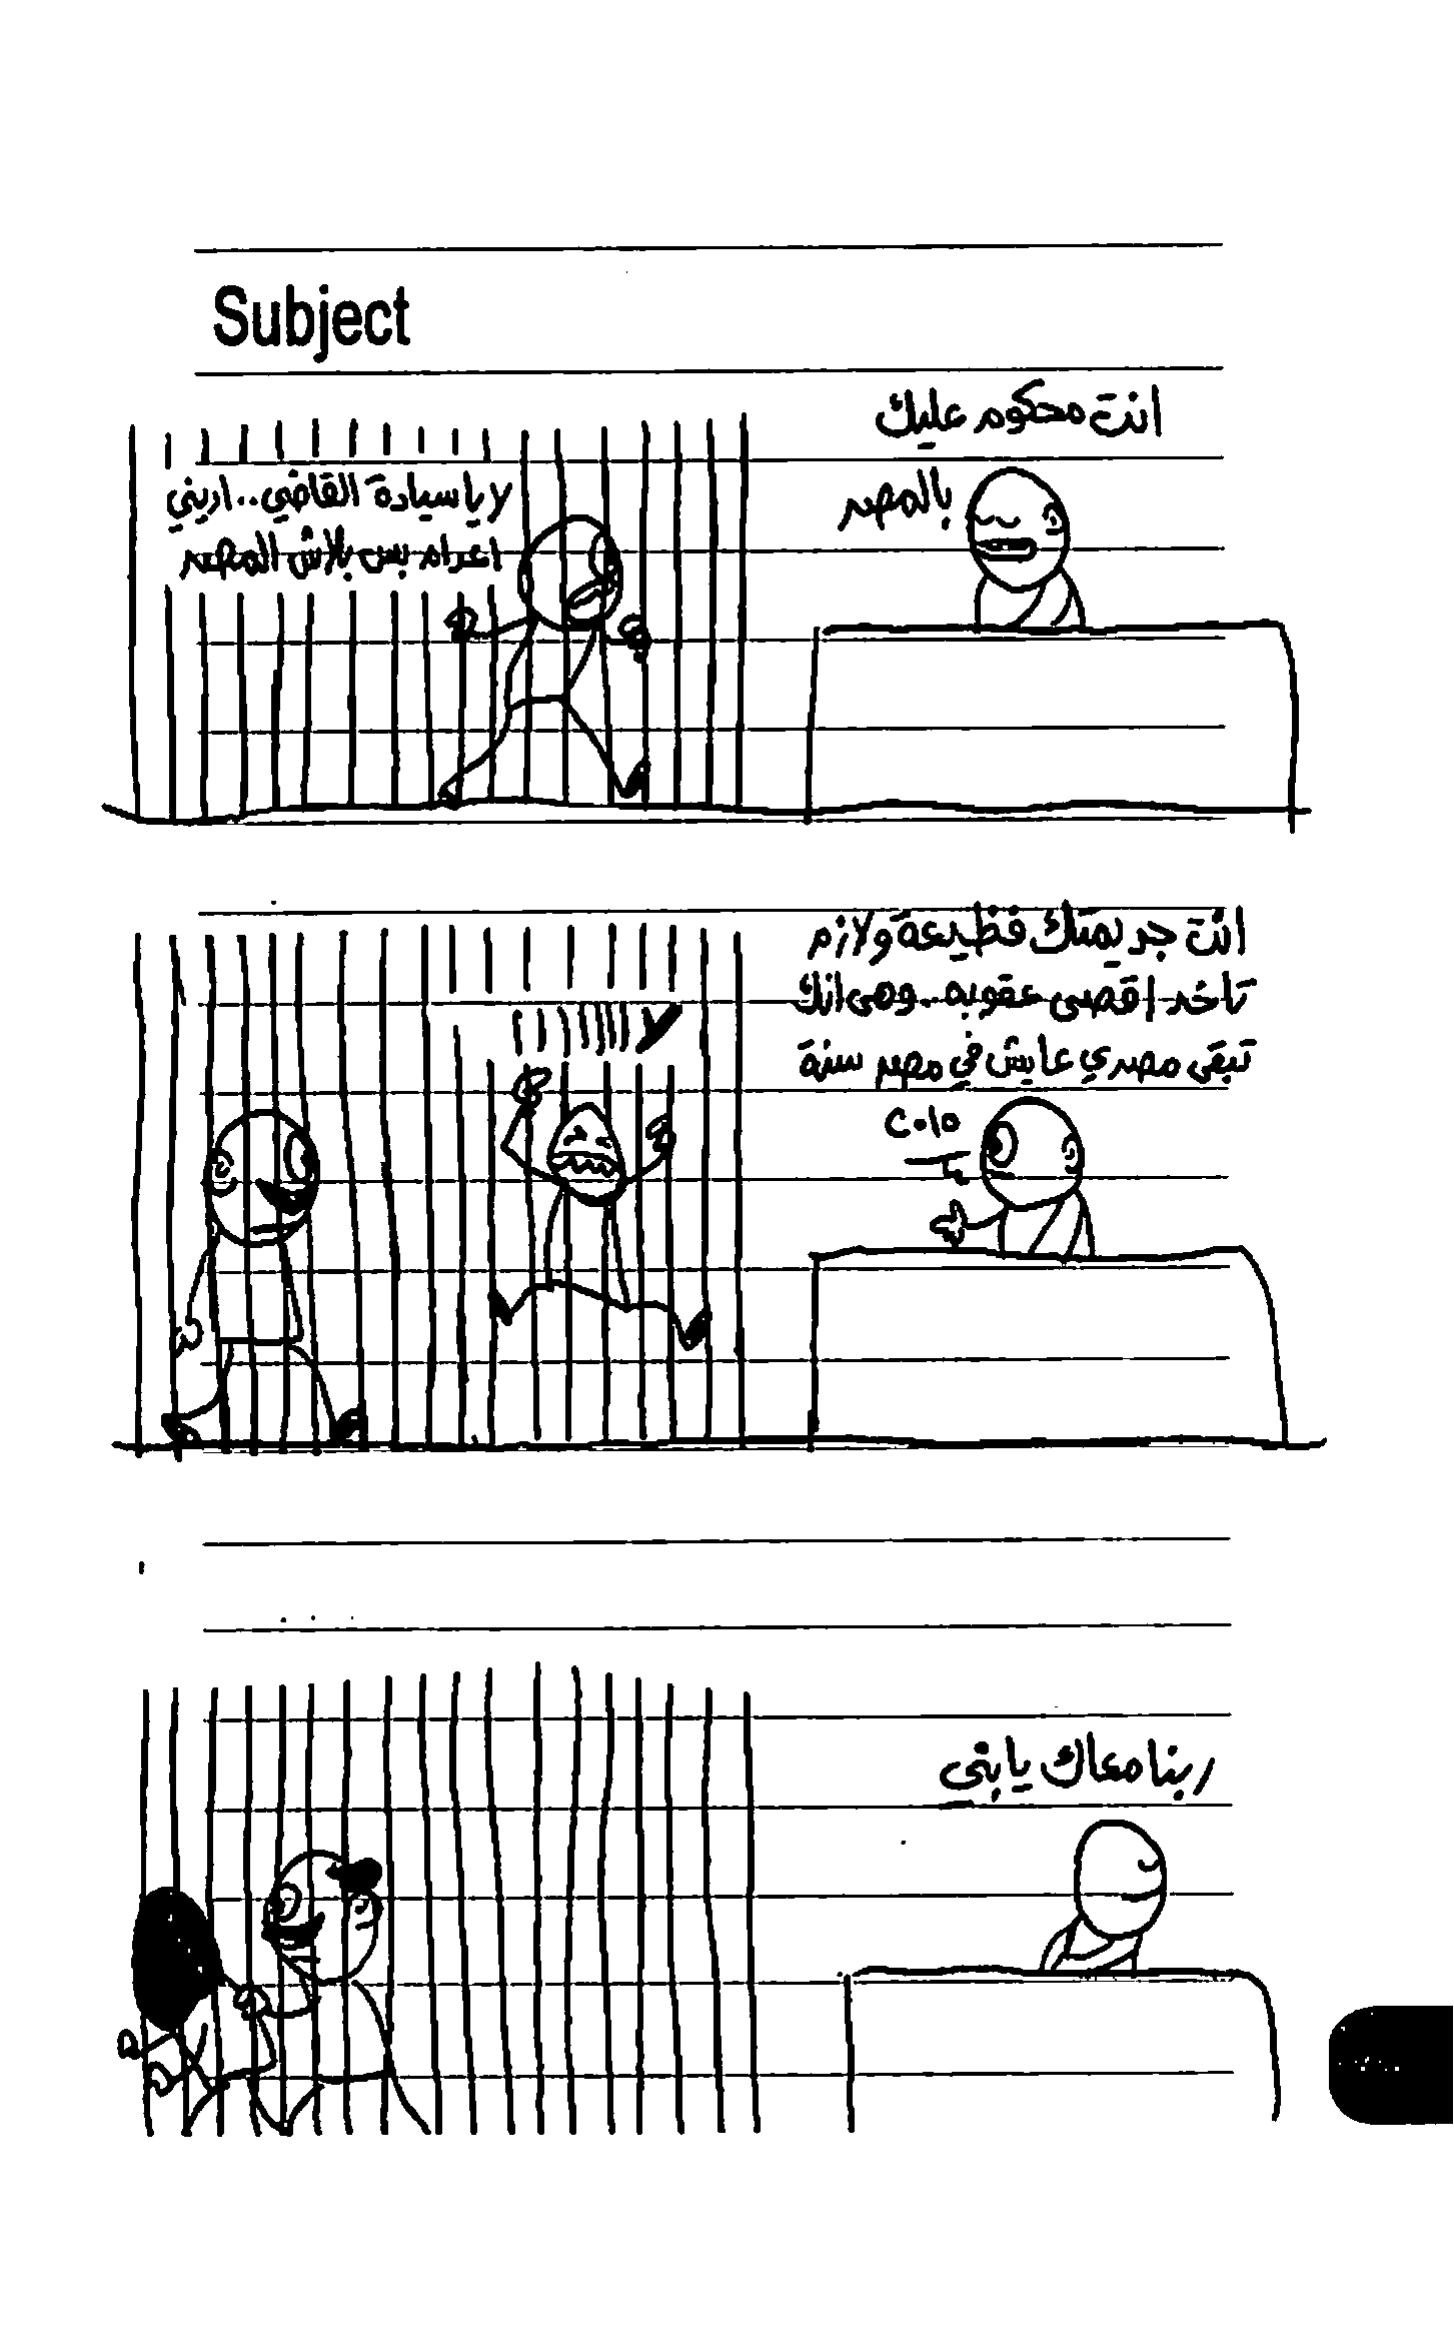 Subject
انت محكوم عليك
بالمصر
لا يا سيادة القاضي.. اديني
اعدام بس بلاش المصر
انت جريمتك فظيعة ولازم
تاخد اقصى عقوبه.. وهى انك
تبقى مصري عايش في مصر سنة
٢٠١٥
لااااااااا
ربنا معاك يا بني